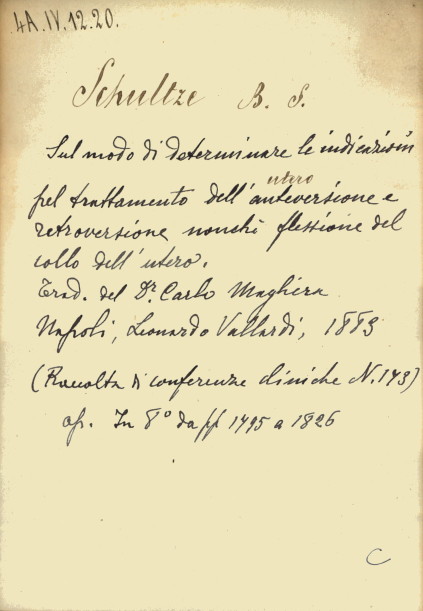 4A.IV.12.20.
Schultze B. S.
Sul modo di determinare le indicazioni
utero
pel trattamento dell'anteversione e
retroversione nonchè flessione del
collo dell'utero.
Trad. del Dr. Carlo Maghera
Napoli, Leonardo Vallardi, 1883
(Raccolta di conferenze cliniche N. 143)
op. In 8° da pp 1495 a 1826
C